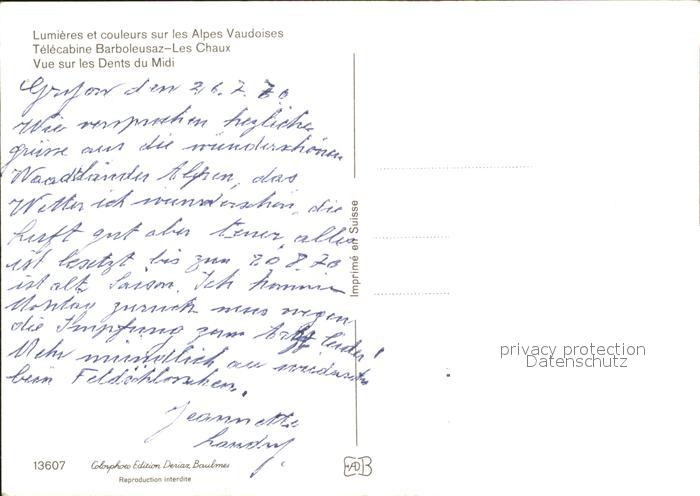 Lumières et couleurs sur les Alpes Vaudoises
Télécabine Barboleusaz–Les Chaux
Vue sur les Dents du Midi
Gryon den 26.7.70
Wie versprochen herzliche
grüsse aus die wunderschönen
Waadtländer Alpen, das
Wetter ich wunderschön, die
Luft gut aber teuer, alles
ist besetzt bis zum 20.8.70
ist alt Saison. Ich komme
Montag zurück muss wegen
die Impfung zum Arzt leider!
Mehr mündlich au
beim Feldschlösschen.
Jeannette
Imprimé en Suisse
privacy protection
Datenschutz
13607
Colorphoto Edition Deriaz, Baulmes
Reproduction interdite